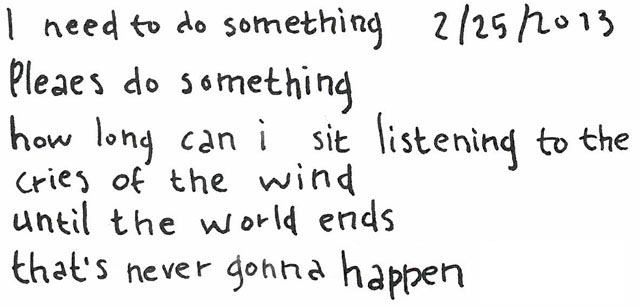 I need to do something 2/25/2013
Pleaes do something
how long can i sit listening to the
cries of the wind
until the world ends
that's never gonna happen